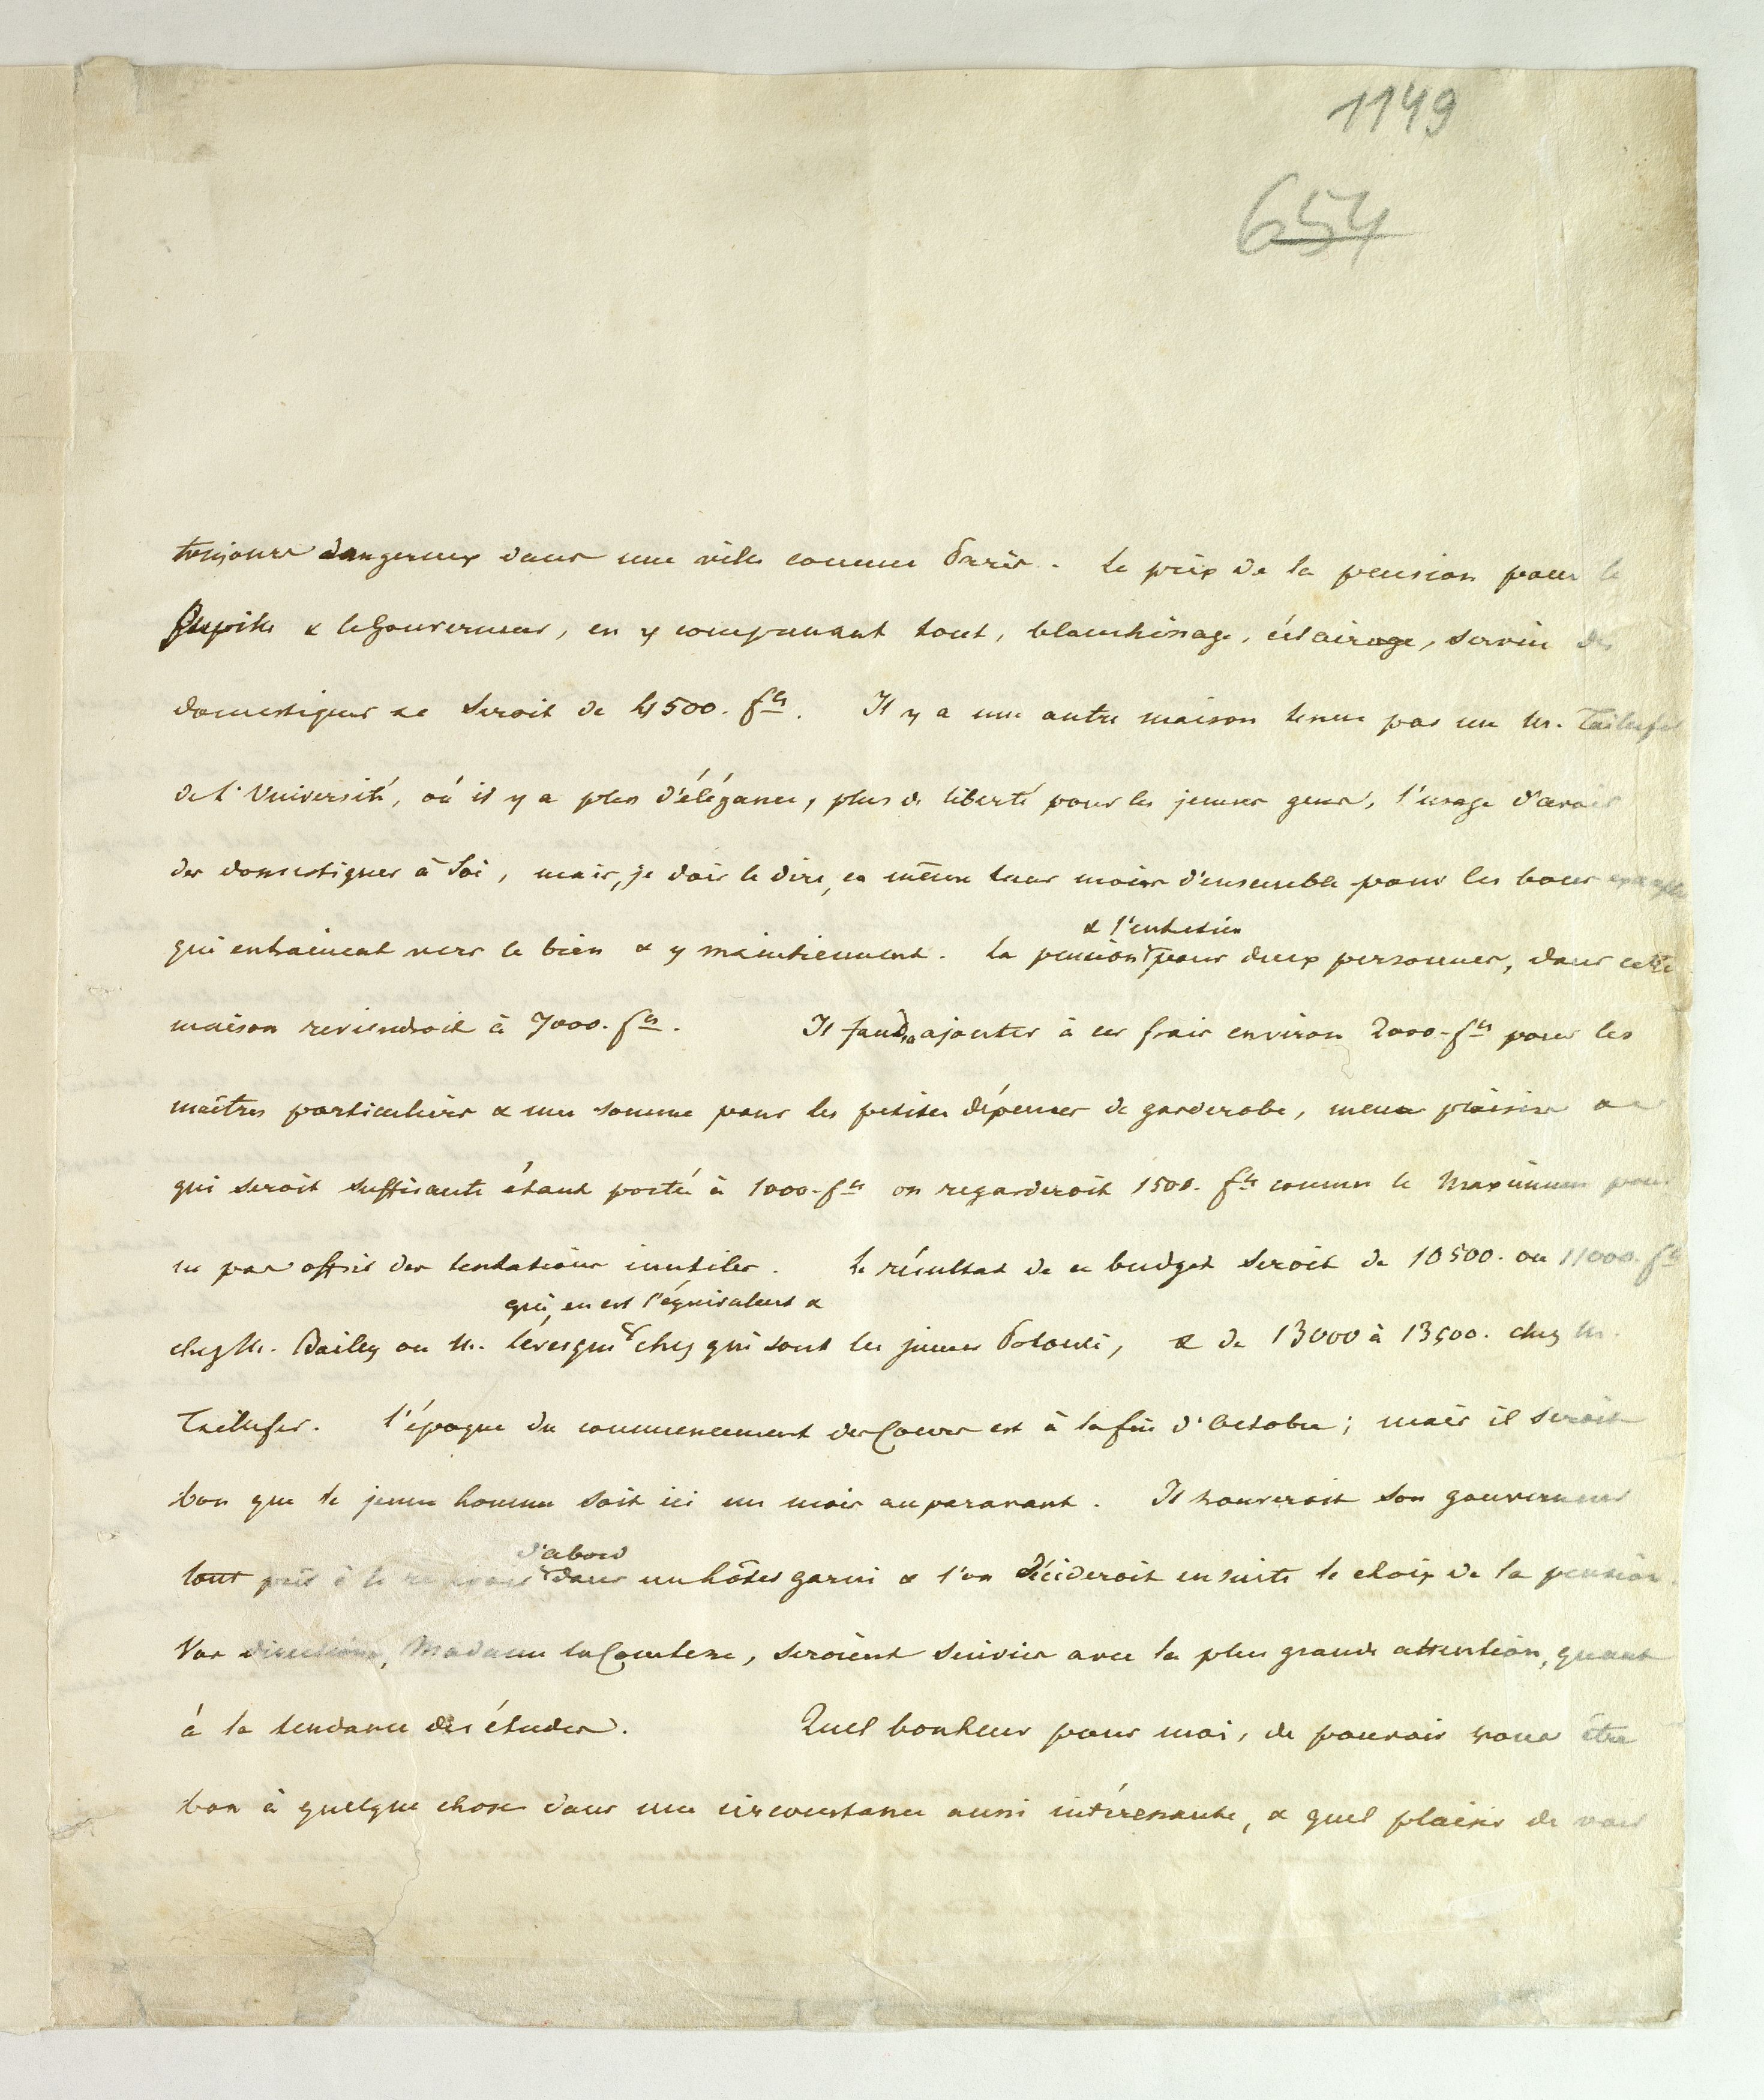 1149
654
toujours dangereux dans une ville comme Paris. Le prix de la pension pour le
Pupille & le Gouverneur, en y comprenant tout, blanchissage, éclairage, service des
domestiques &c seroit de 4500. fcs. Il y a une autre maison tenue par un Mr. Taillefer
de l'Université, où il y a plus d'élégance, plus de liberté pour les jeunes gens, l'usage d'avoir
des domestiques à soi, mais, je dois le dire, en même tems moins d'ensemble pour les bons exemples
qui entrainent vers le bien & y maintiennent. La pension & l'entretien pour deux personnes, dans cette
maison reviendroit à 7000. fcs. Il faudra ajouter à ces frais environ 2000. fcs pour les
maîtres particuliers & une somme pour les petites dépenses de garderobe, menus plaisirs &c
qui seroit suffisante étant portée à 1000. fcs on regarderoit 1500. fcs comme le Maximum pour
ne pas offrir des tentations inutiles. Le résultat de ce budget seroit de 10500. ou 11000. fcs
chez Mr. Bailey ou Mr. Lévesque qui en est l'équivalent & chez qui sont les jeunes Potocki, & de 13000 à 13500. chez Mr.
Taillefer. L'époque du commencement des Cours est à la fin d'Octobre; mais il seroit
bon que le jeune homme soit ici un mois auparavant. Il trouveroit son gouverneur
tout prêt à le recevoir d'abord dans un hôtel garni & l'on décideroit ensuite le choix de la pension.
Vos directions, Madame la Comtesse, seroient suivies avec la plus grande attention, quant
à la tendance des études. Quel bonheur pour moi, de pouvoir vous être
bon à quelque chose dans une circonstance aussi intéressante, & quel plaisir de voir